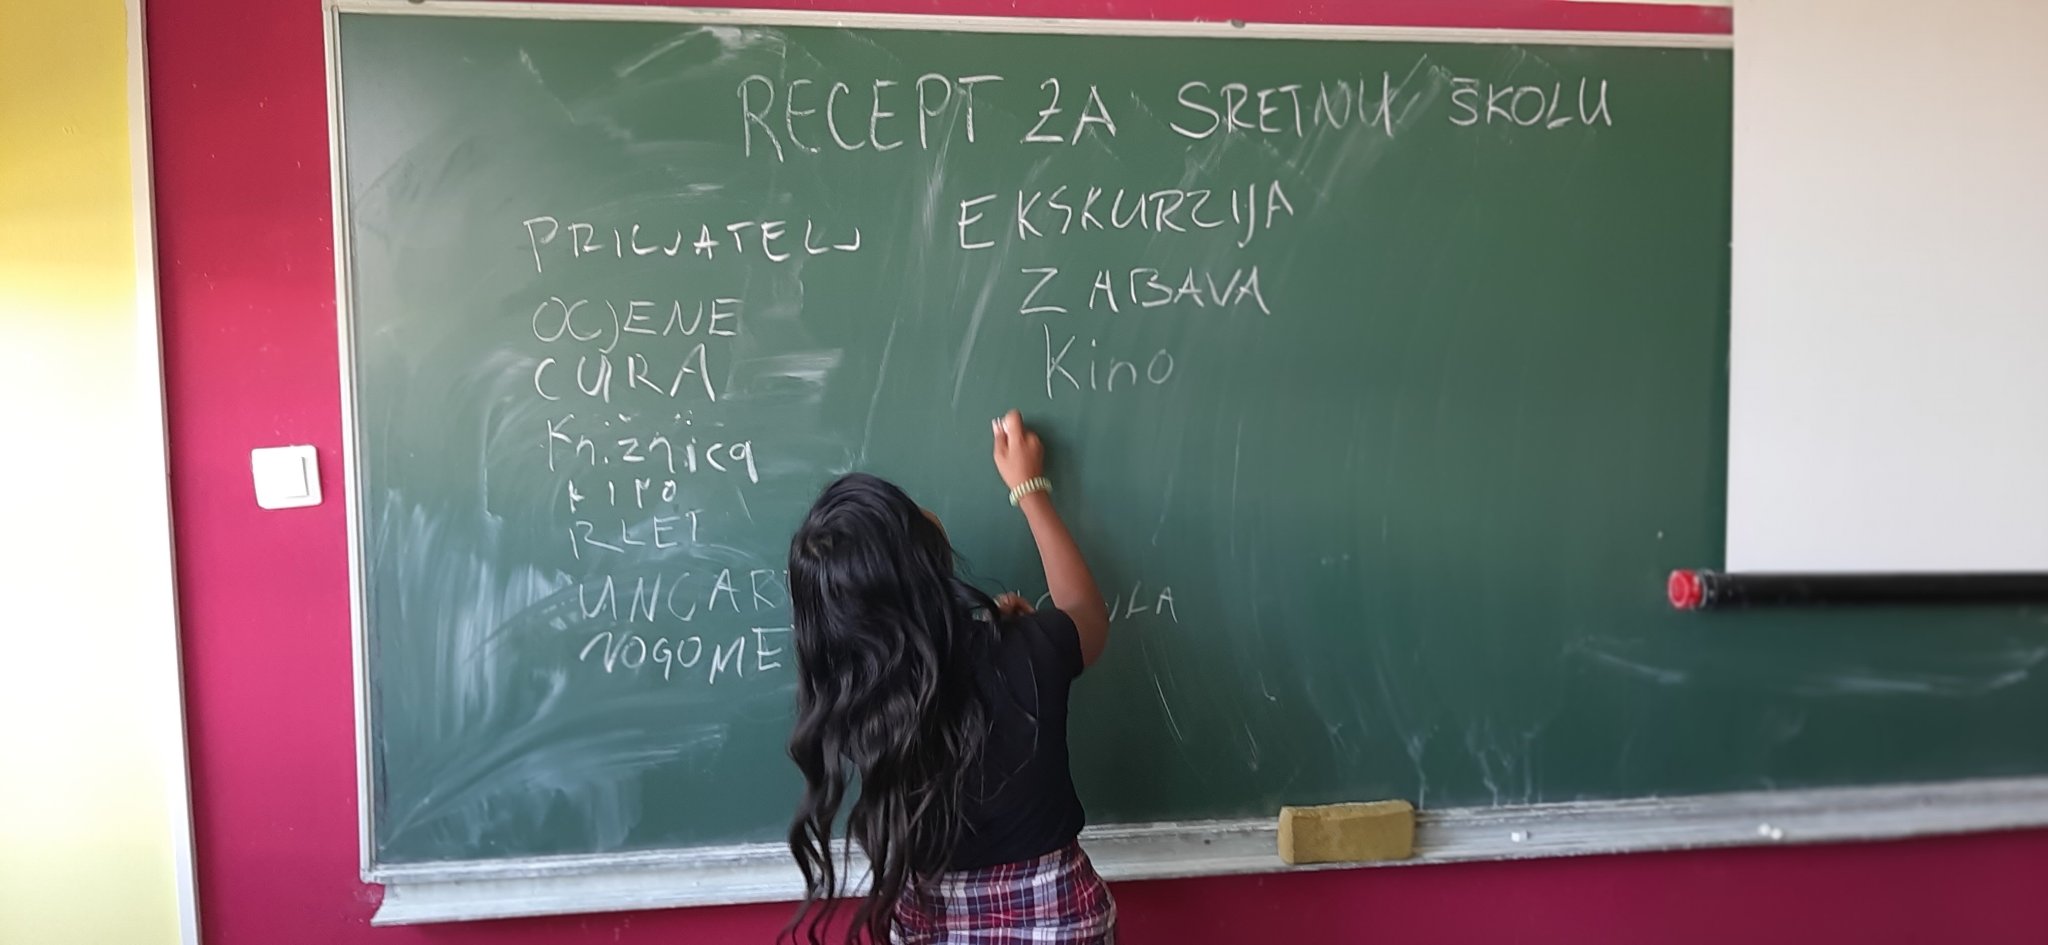 RECEPT ZA SRETNU ŠKOLU
PRIJATELJ
OCJENE
CURA
Knižnica
KINO
IZLET
NOGOME
EKSKURZIJA
ZABAVA
Kino